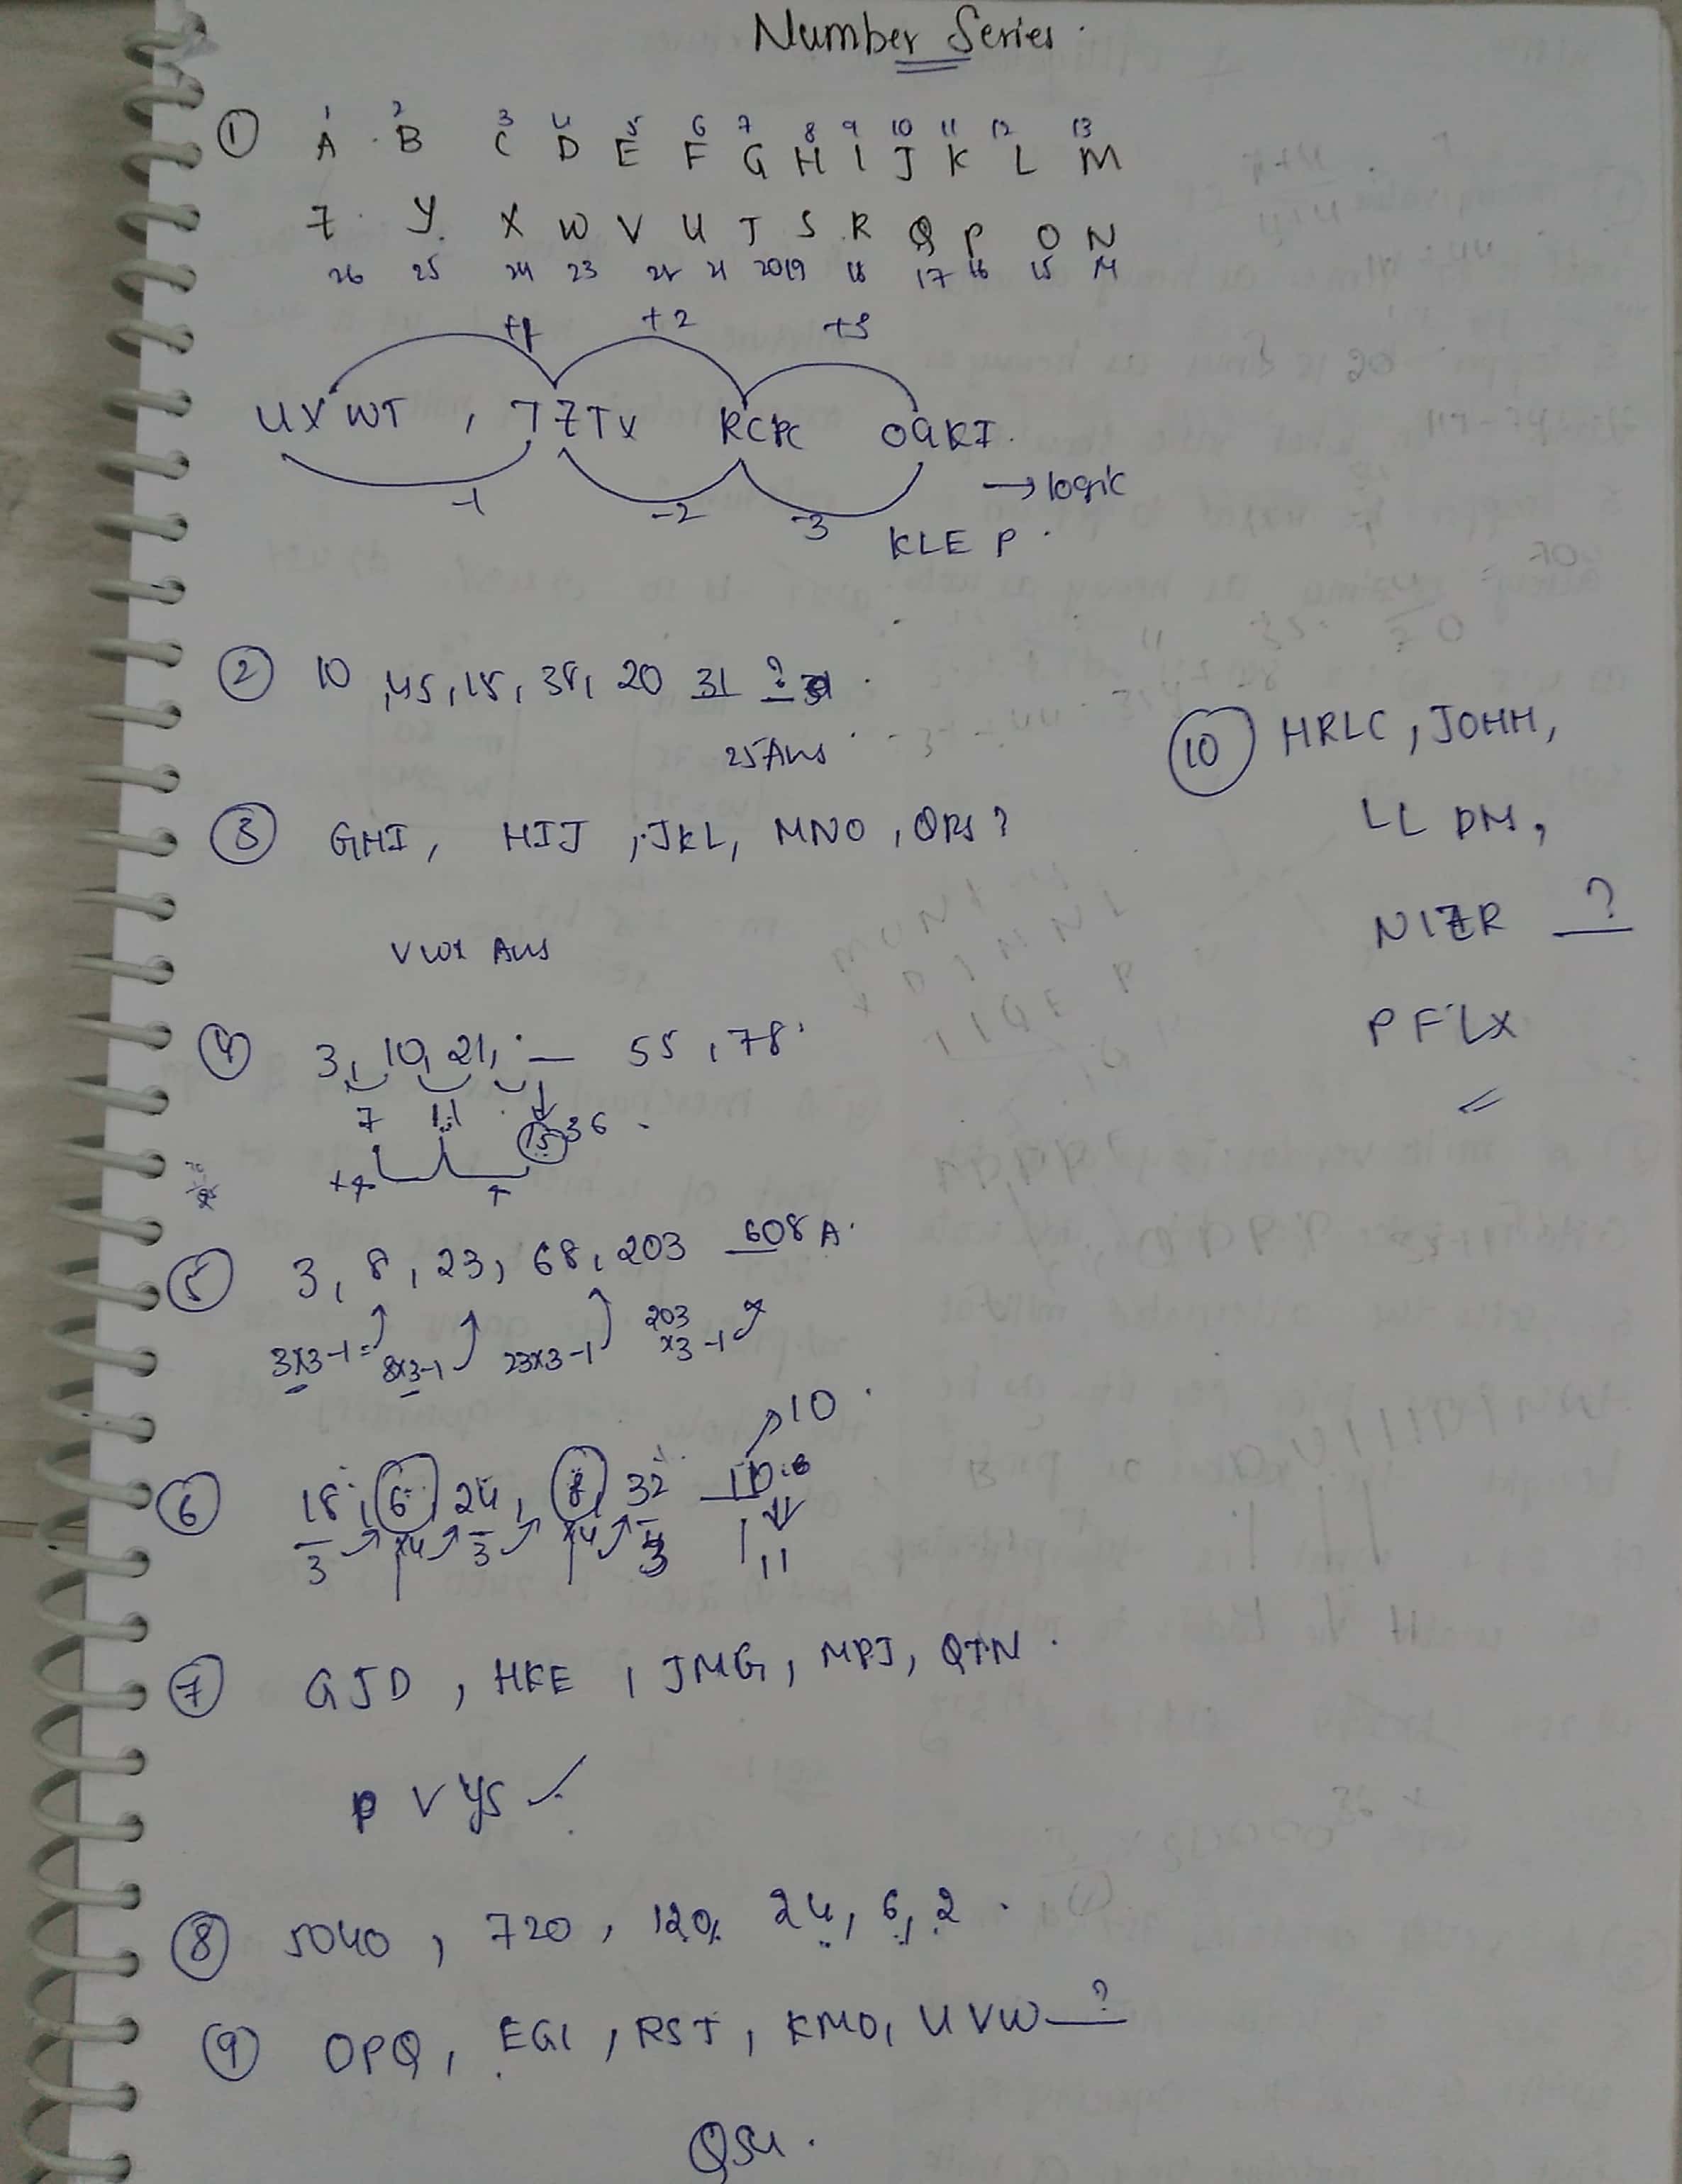 Number Series.
① 1 2 3 4 5 6 7 8 9 10 11 12 13
A B C D E F G H I J K L M
Z Y X W V U T S R Q P O N
26 25 24 23 22 21 20 19 18 17 16 15 14
+1 +2 +3
UXWT, TZTX RCPC OGKI.
→ logic
-1 -2 -3
KLE P.
② 10, 45, 15, 38, 20 31 ?
25 Ans
③ GHI, HIJ, JKL, MNO, QRS?
VWX Ans
④ 3, 10, 21, _ 55, 78.
7 11 15 36
+4
⑤ 3, 8, 23, 68, 203 608 A.
3x3-1= 8x3-1 23x3-1 203 x3-1
10
⑥ 18, 6, 24, 8, 32
3 x4 3 x4 3
11
⑦ GJD, HKE, JMG, MPJ, QTN.
VYS ✓
⑧ 5040, 720, 120, 24, 6, 2.
⑨ OPQ, EGI, RST, KMO, UVW _ ?
QSU.
⑩ HRLC, JOHH,
LL DM,
NIZR ?
PFLX